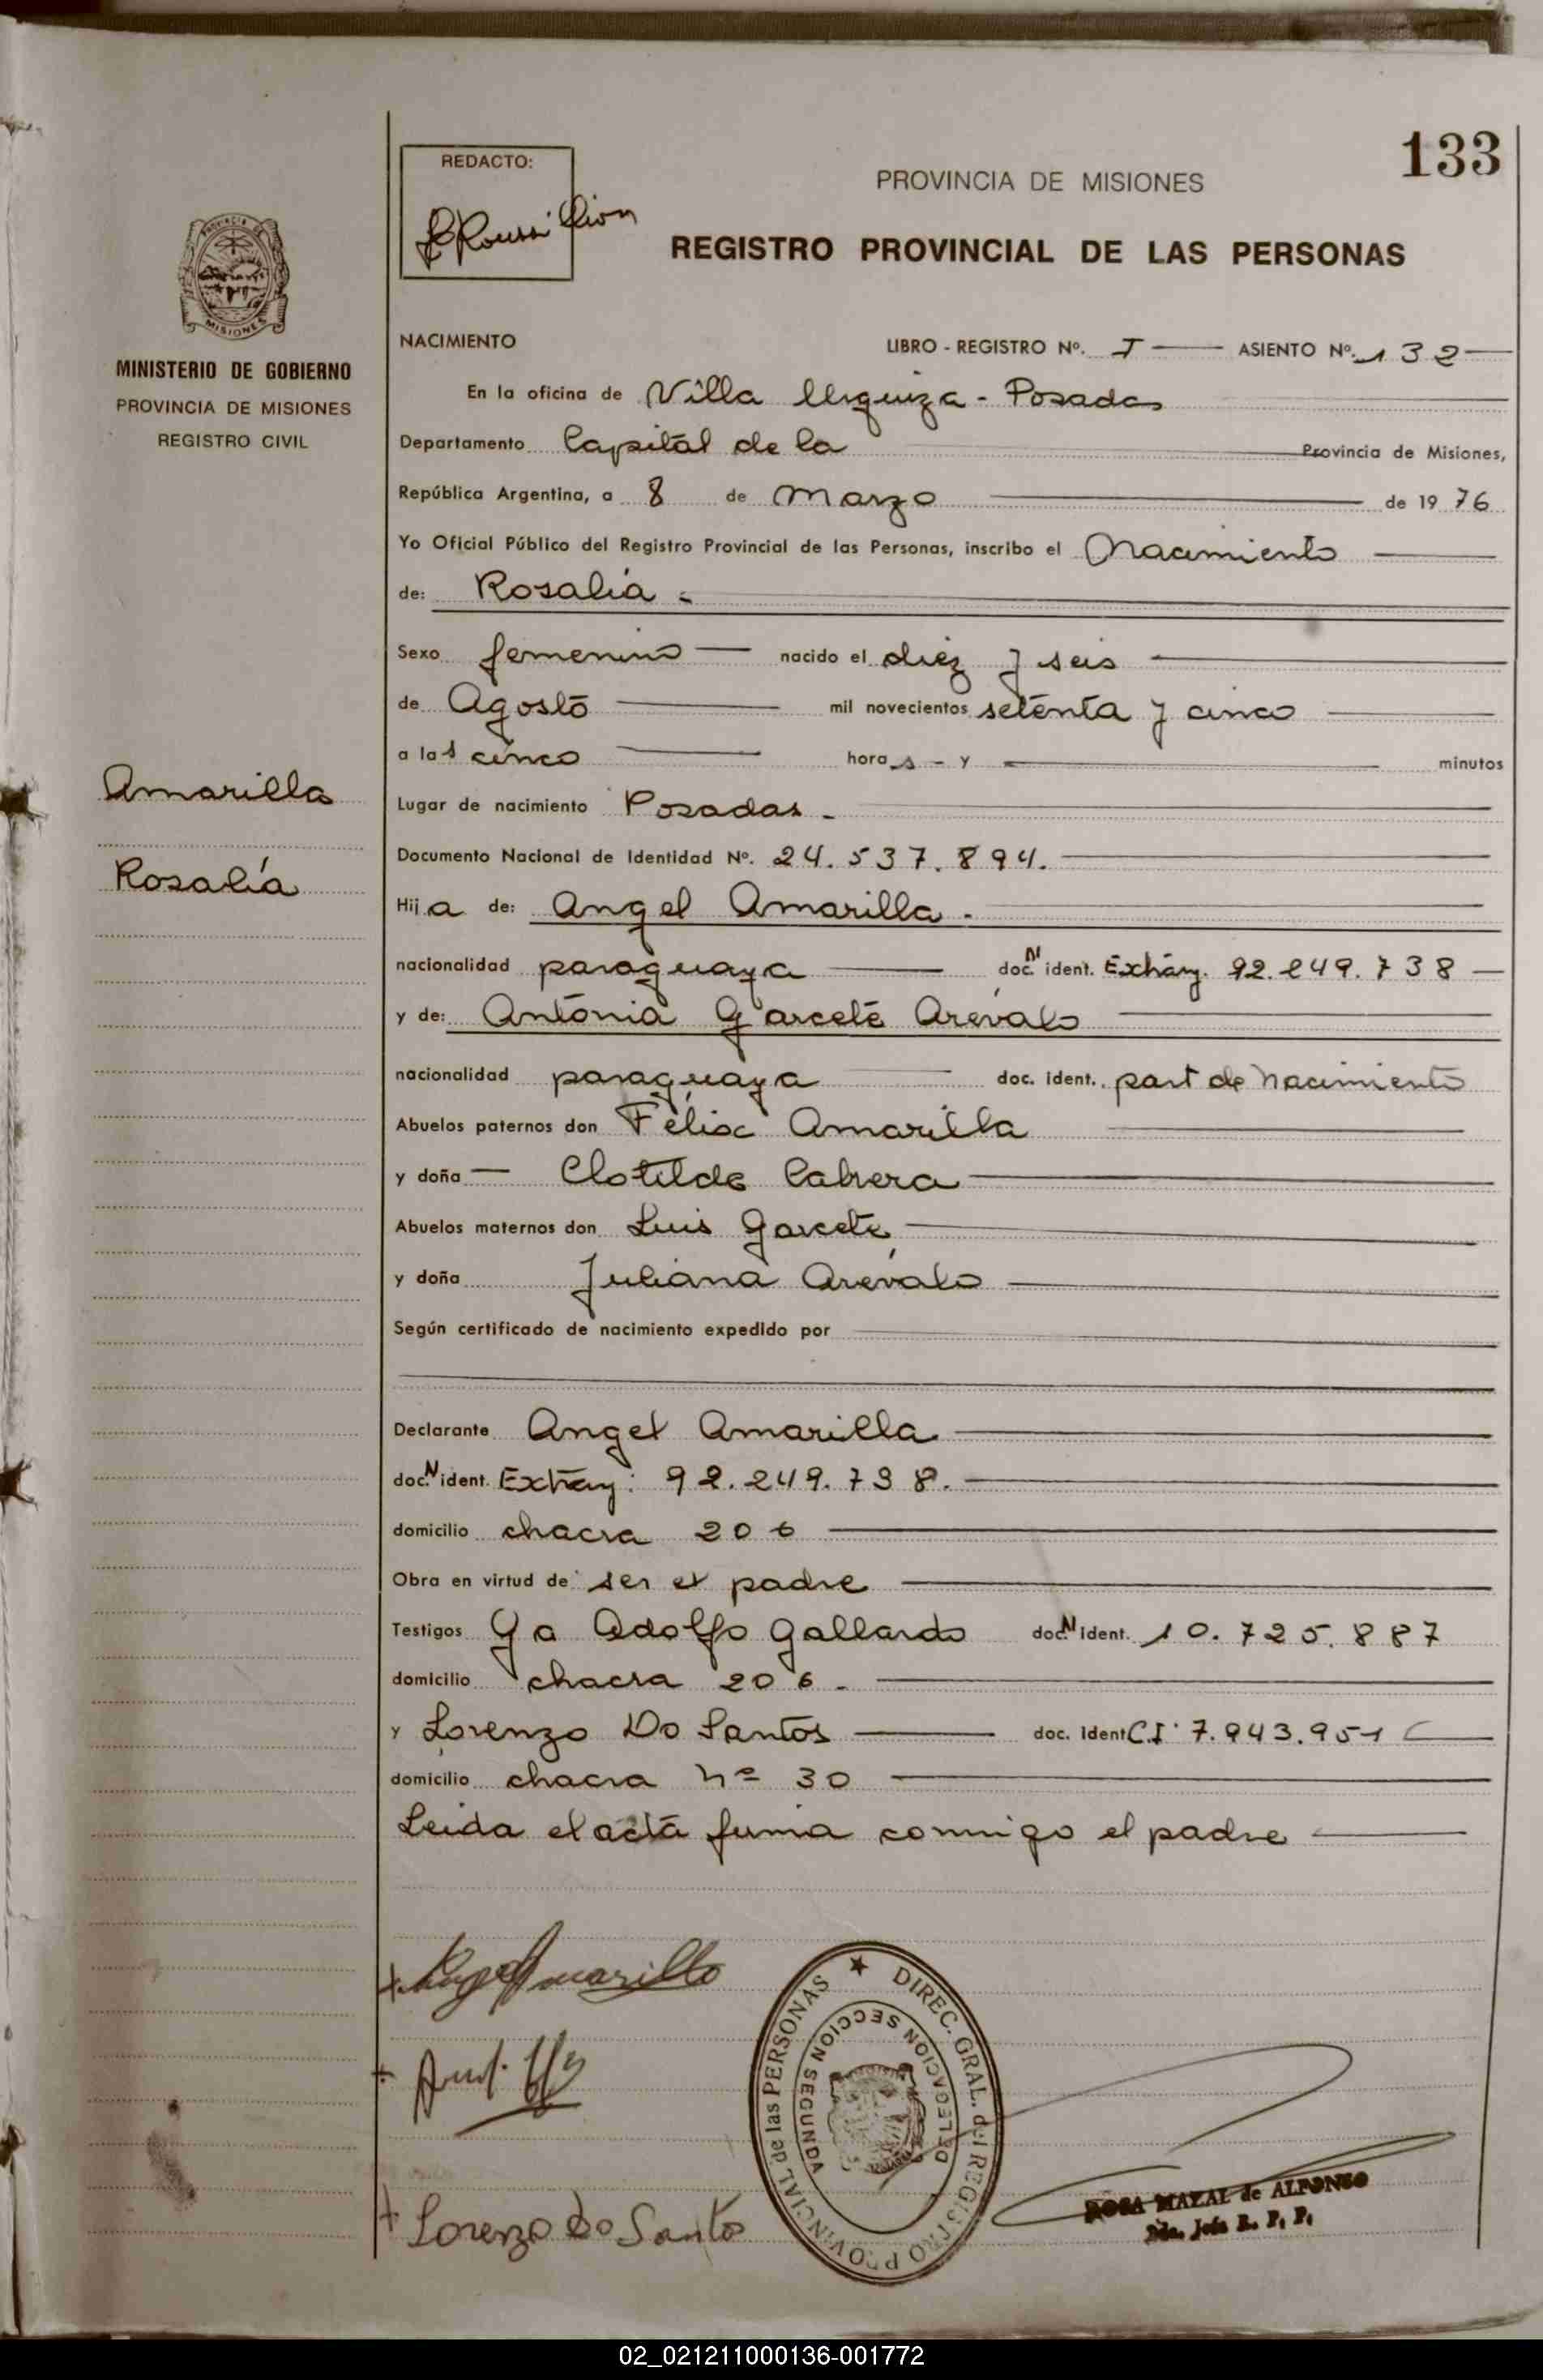 133
REDACTO:
PROVINCIA DE MISIONES
REGISTRO PROVINCIAL DE LAS PERSONAS
MISIONES
MINISTERIO DE GOBIERNO
PROVINCIA DE MISIONES
REGISTRO CIVIL
NACIMIENTO LIBRO - REGISTRO Nº. I ASIENTO Nº. 132
En la oficina de Villa Urquiza - Posadas
Departamento Capital de la Provincia de Misiones,
República Argentina, a 8 de Marzo de 1976
Yo Oficial Público del Registro Provincial de las Personas, inscribo el Nacimiento
de: Rosalía -
Sexo femenino nacido el diez y seis
de Agosto mil novecientos setenta y cinco
a las cinco horas - y minutos
Amarilla
Lugar de nacimiento Posadas -
Documento Nacional de Identidad Nº. 24.537.894.
Rosalía
Hija de: Angel Amarilla -
nacionalidad paraguaya doc. N ident. Extranj. 92.249.738
y de: Antonia Garcete Arévalo
nacionalidad paraguaya doc. ident. part de Nacimiento
Abuelos paternos don Félix Amarilla
y doña Clotilde Cabrera
Abuelos maternos don Luis Garcete
y doña Juliana Arévalo
Según certificado de nacimiento expedido por
Declarante Angel Amarilla
doc. N ident. Extranj: 92.249.738.
domicilio chacra 206
Obra en virtud de ser el padre
Testigos Adolfo Gallardo doc. N ident. 10.725.887
domicilio chacra 206 -
y Lorenzo Do Santos doc. ident C.I. 7.943.951
domicilio chacra nº 30
Leida el acta firma conmigo el padre
Angel Amarilla
Lorenzo Do Santos
DIREC. GRAL. del REGISTRO PROVINCIAL de las PERSONAS
DELEGACION SECCION SEGUNDA
ROSA MAZAL de ALFONSO
02_021211000136-001772